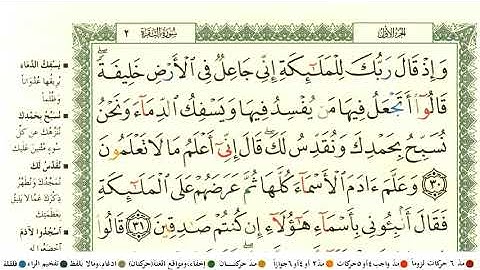 الجزء الأول
سورة البقرة ٢
وَإِذْ قَالَ رَبُّكَ لِلْمَلَٰٓئِكَةِ إِنِّى جَاعِلٌ فِى ٱلْأَرْضِ خَلِيفَةً ۖ
قَالُوٓا۟ أَتَجْعَلُ فِيهَا مَن يُفْسِدُ فِيهَا وَيَسْفِكُ ٱلدِّمَآءَ وَنَحْنُ
نُسَبِّحُ بِحَمْدِكَ وَنُقَدِّسُ لَكَ ۖ قَالَ إِنِّىٓ أَعْلَمُ مَا لَا تَعْلَمُونَ
٣٠ وَعَلَّمَ ءَادَمَ ٱلْأَسْمَآءَ كُلَّهَا ثُمَّ عَرَضَهُمْ عَلَى ٱلْمَلَٰٓئِكَةِ
فَقَالَ أَنۢبِـُٔونِى بِأَسْمَآءِ هَٰٓؤُلَآءِ إِن كُنتُمْ صَٰدِقِينَ ٣١ قَالُوا۟
يَسْفِكُ الدِّمَاءَ
يُرِيقُهَا عُدْوَانًا
وَظُلْمًا
نُسَبِّحُ بِحَمْدِكَ
نُنَزِّهُكَ عن كلِّ
سوءٍ مُثْنِينَ عليك
نُقَدِّسُ لَكَ
نُمَجِّدُكَ وَنُطَهِّرُ
ذِكْرَكَ عَمَّا لا يَلِيقُ
بِعَظَمَتِكَ
اسْجُدُوا لِآدَمَ
اخضعوا له
مدّ ٦ حركات لزوماً
مدّ واجب ٤ أو ٥ حركات
مدّ ٢ أو ٤ أو ٦ جوازاً
مدّ حركتان
إخفاء، ومواقع الغنّة (حركتان)
ادغام، وما لا يُلفظ
تفخيم الراء
قلقلة